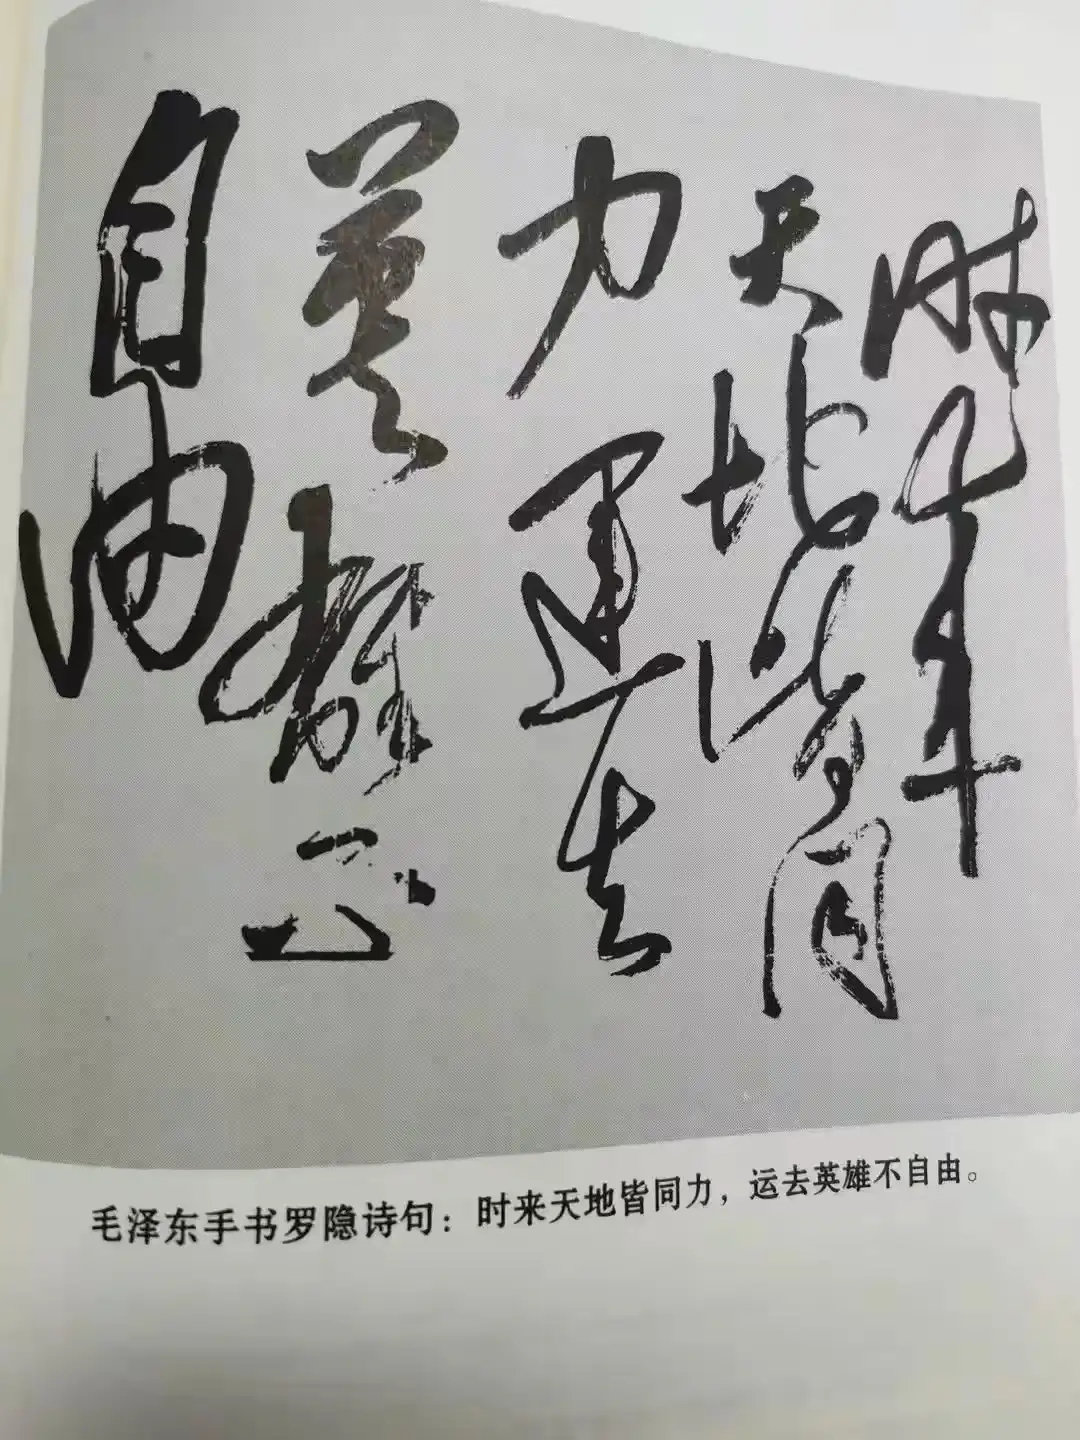 时来
天地皆同
力运去
英雄不
自由
毛泽东手书罗隐诗句：时来天地皆同力，运去英雄不自由。